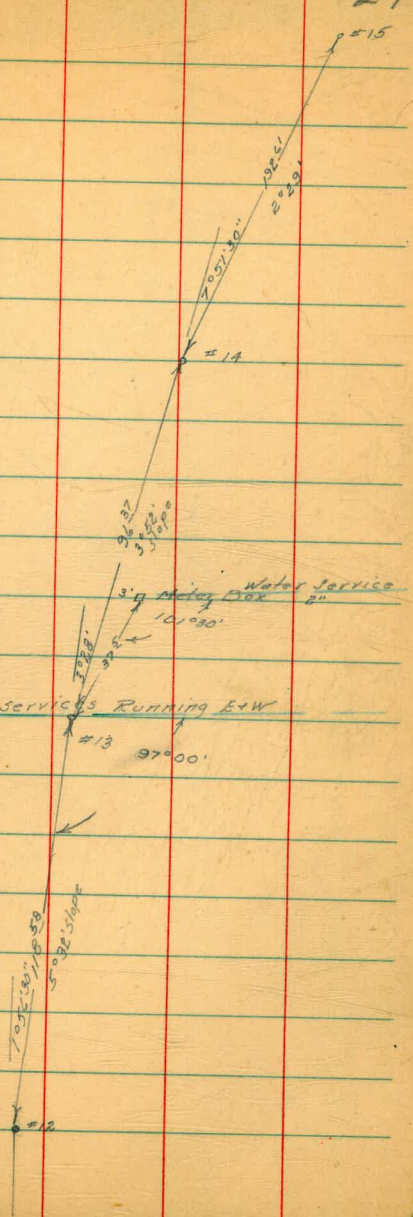 #15
192.6'
2°29'
7°51'30"
#14
96.37
3°52'
slope
Water Service
3' Meter Box 2"
101°30'
3°28'
37.5
services Running E+W
#13
97°00'
118.58
5°32' slope
1°56'30"
#12